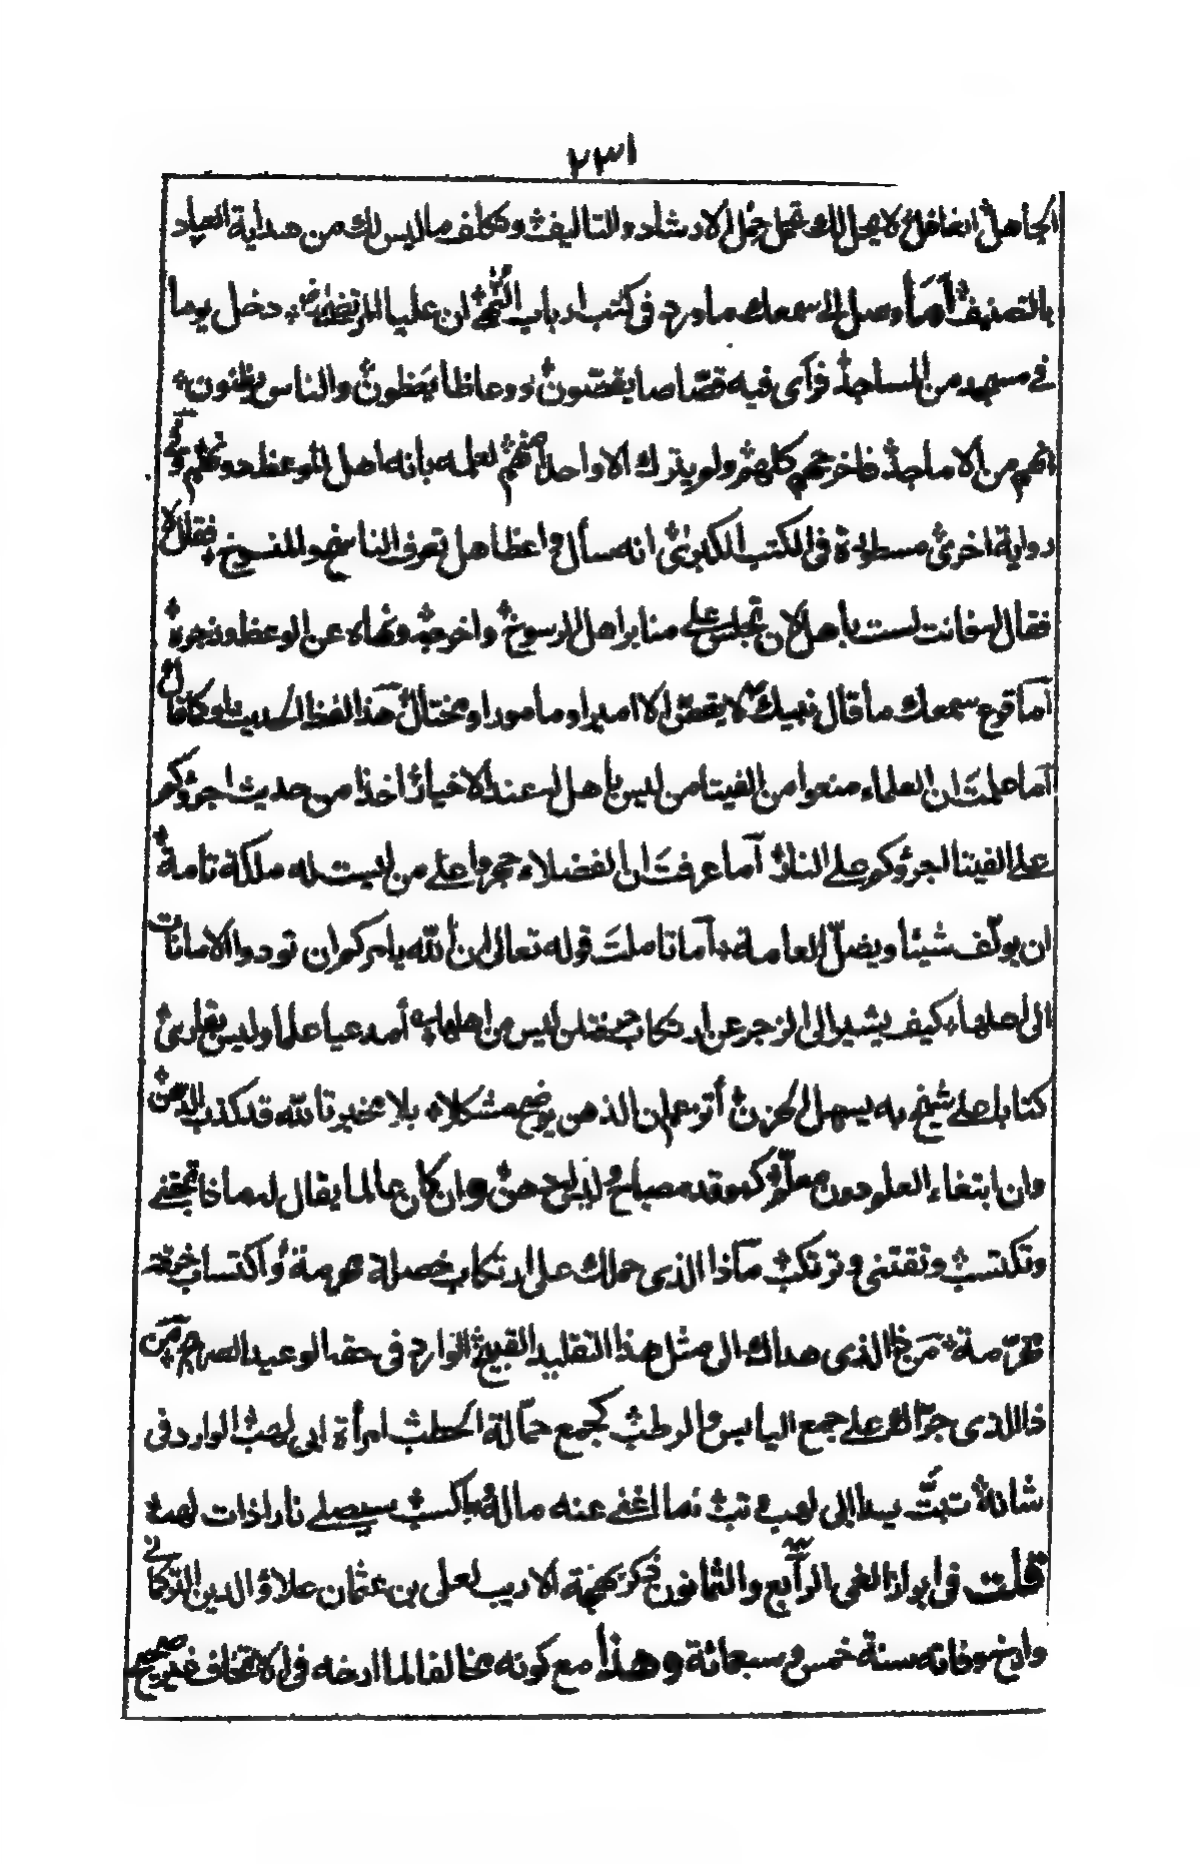 ٢٣١
الجاهل الغافل لا يحل لك تحمل حمل الارشاد والتاليف وتكلف ما ليس لك من هداية العباد
بالتصنيف أما وصل الى سمعك ما ورد فى كتب ارباب ان عليا المرتضى دخل يوما
فى مسجد من المساجد فرأى فيه قصّاصا يقصّون ووعاظا يعظون والناس يظنون
انهم من الاماجد فاخرجهم كلهم ولم يترك الا واحدا منهم لعلمه بانه اهل للوعظ
رواية اخرى مسطورة فى الكتب الكبرى انه سأل واعظا هل تعرف الناسخ والمنسوخ فقال لا
فقال اسفانت لست بأهل لان تجلس على منابر اهل الرسوخ واخرجه ونهاه عن الوعظ وزجره
أما قرع سمعك ما قال نبيك لا يقصّ الا امير او مأمور او مختال هذا لفظ الحديث او كما قال
أما علمت ان العلماء منعوا من الفيتا من ليس بأهل له عند الاخيار اخذا من حديث اجرؤكم
على الفيتا اجرؤكم على النار أما عرفت ان الفضلاء حجروا على من ليست له ملكة تامة
ان يولّف شيئا ويضلّ العامة أما تاملت قوله تعالى ان الله يامركم ان تودوا الامانات
الى اهلها كيف يشير الى الزجر عن ارتكاب من ليس من اهلها أمدعيا علما وليس بقارئ
كتابا على شيخ به يسهل الحزن أتزعم ان الذهن يوضح مشكلا بلا مخبر تالله قد كذب الذهن
وان ابتغاء العلم دون معلّم كموقد مصباح وليس له دهن وان كان عالما يقال له ماذا تجتنى
وتكتسب وتقتنى وترتكب ماذا الذى حملك على ارتكاب خصلة محرمة واكتساب
محرّمة من ذا الذى هداك الى مثل هذا التقليد القبيح الوارد فى حقه الوعيد الصريح من
ذا الذى جرّاك على جمع اليابس والرطب كجمع حمّالة الحطب امرأة ابى لهب الوارد فى
شانه تبّت يدا ابى لهب وتب ما اغنى عنه ماله وما كسب سيصلى نارا ذات لهب
قلت فى ابراز الغى الرابع والثمانون ذكر نهمة الاريب لعلى بن عثمان علاؤ الدين التركمانى
وارخ وفاته سنة خمس وسبعمائة وهذا مع كونه مخالفا لما ارخه فى الاتحاف غير صحيح